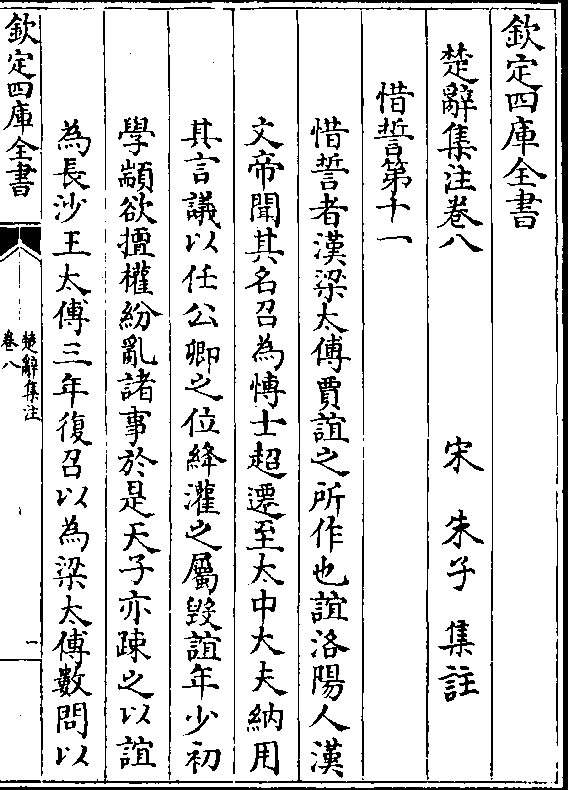 欽定四庫全書
楚辭集注卷八
宋 朱子 集註
惜誓第十一
惜誓者漢梁太傅賈誼之所作也誼洛陽人漢
文帝聞其名召為愽士超遷至太中大夫納用
其言議以任公卿之位絳灌之屬毀誼年少初
學顓欲擅權紛亂諸事於是天子亦踈之以誼
為長沙王太傅三年復召以為梁太傅數問以
欽定四庫全書
楚辭集注
卷八
一